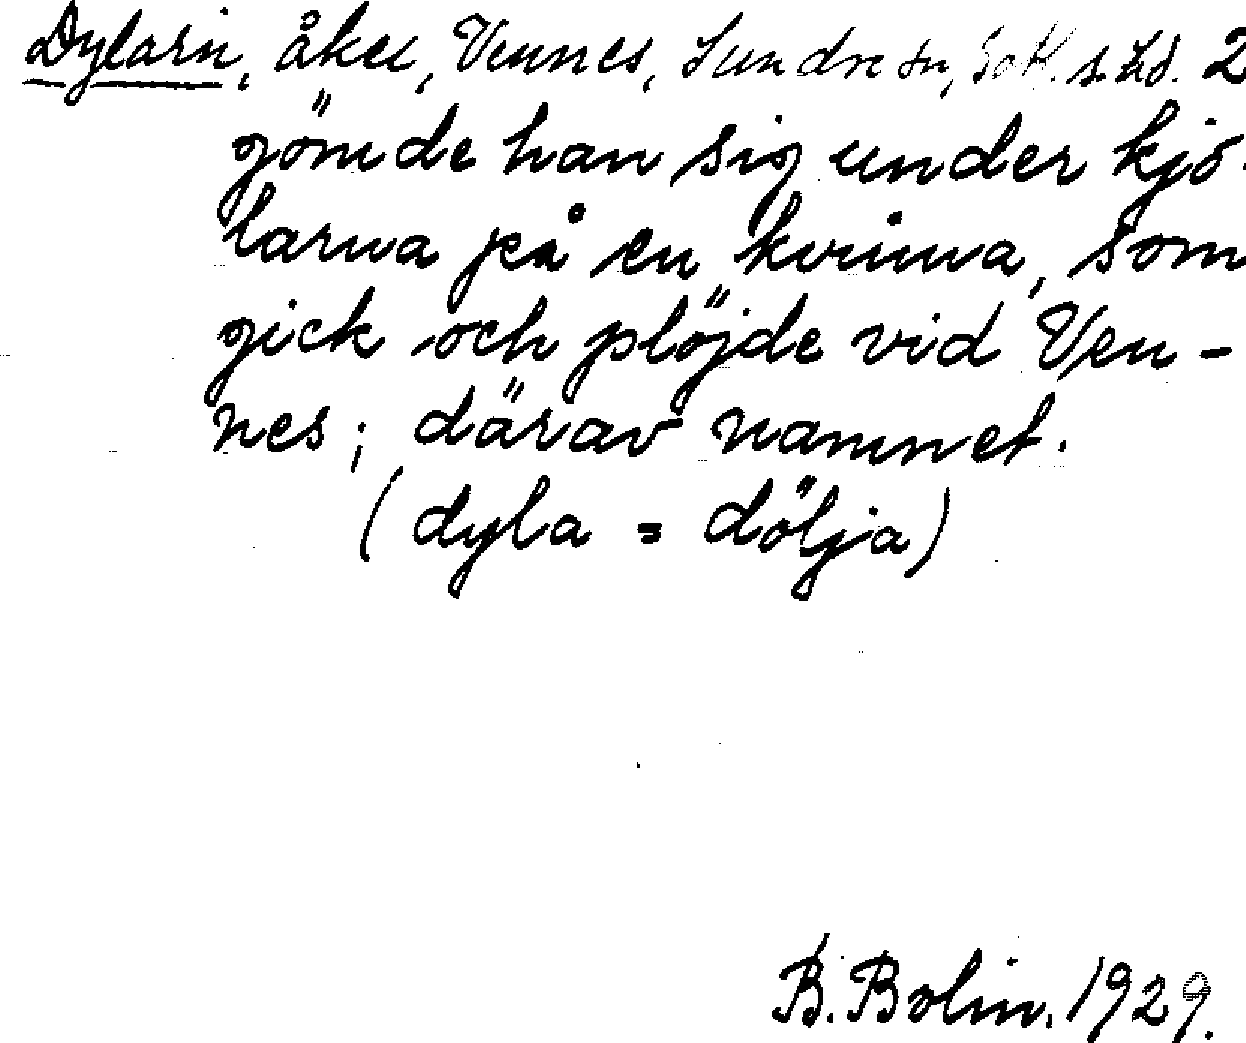 Dylarn, åker, Vennes, Sundre sn, Gotl. s. hd. 2
gömde han sig under kjo-
larna på en kvinna, som
gick och plöjde vid Ven-
nes; därav namnet.
(dyla = dölja)
B. Bolin. 1929.